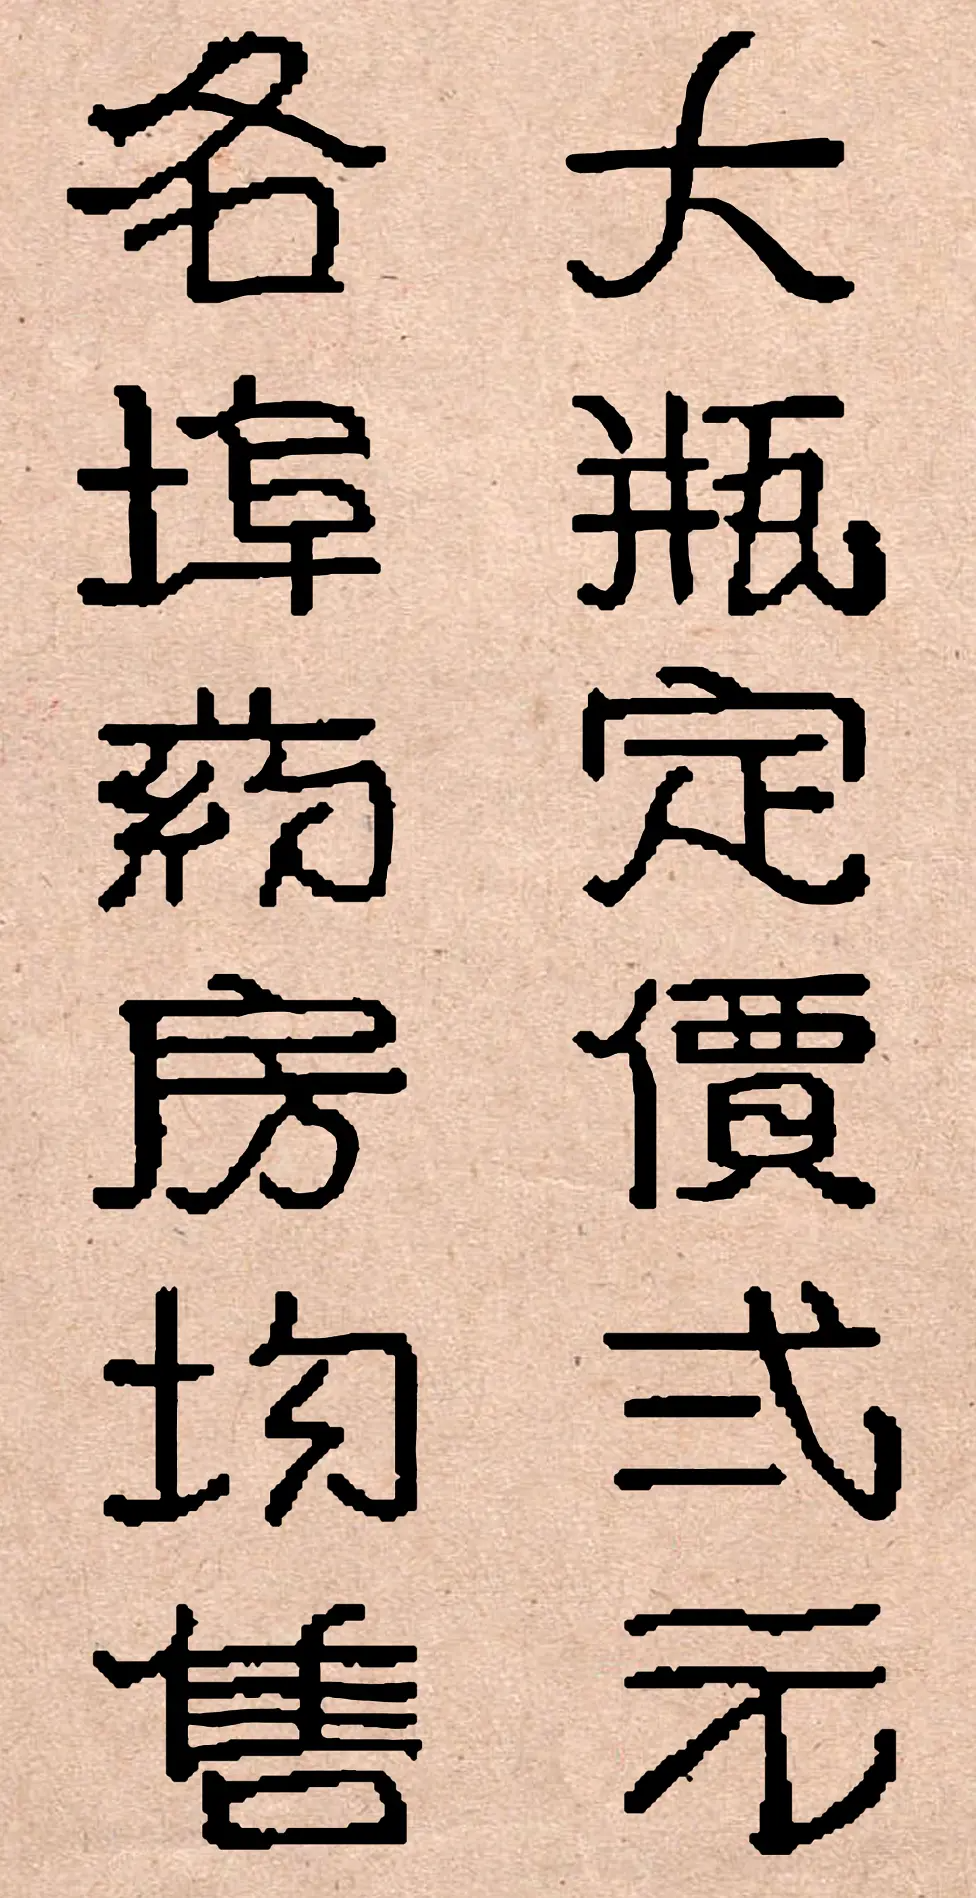 大瓶定價弍元
各埠葯房均售